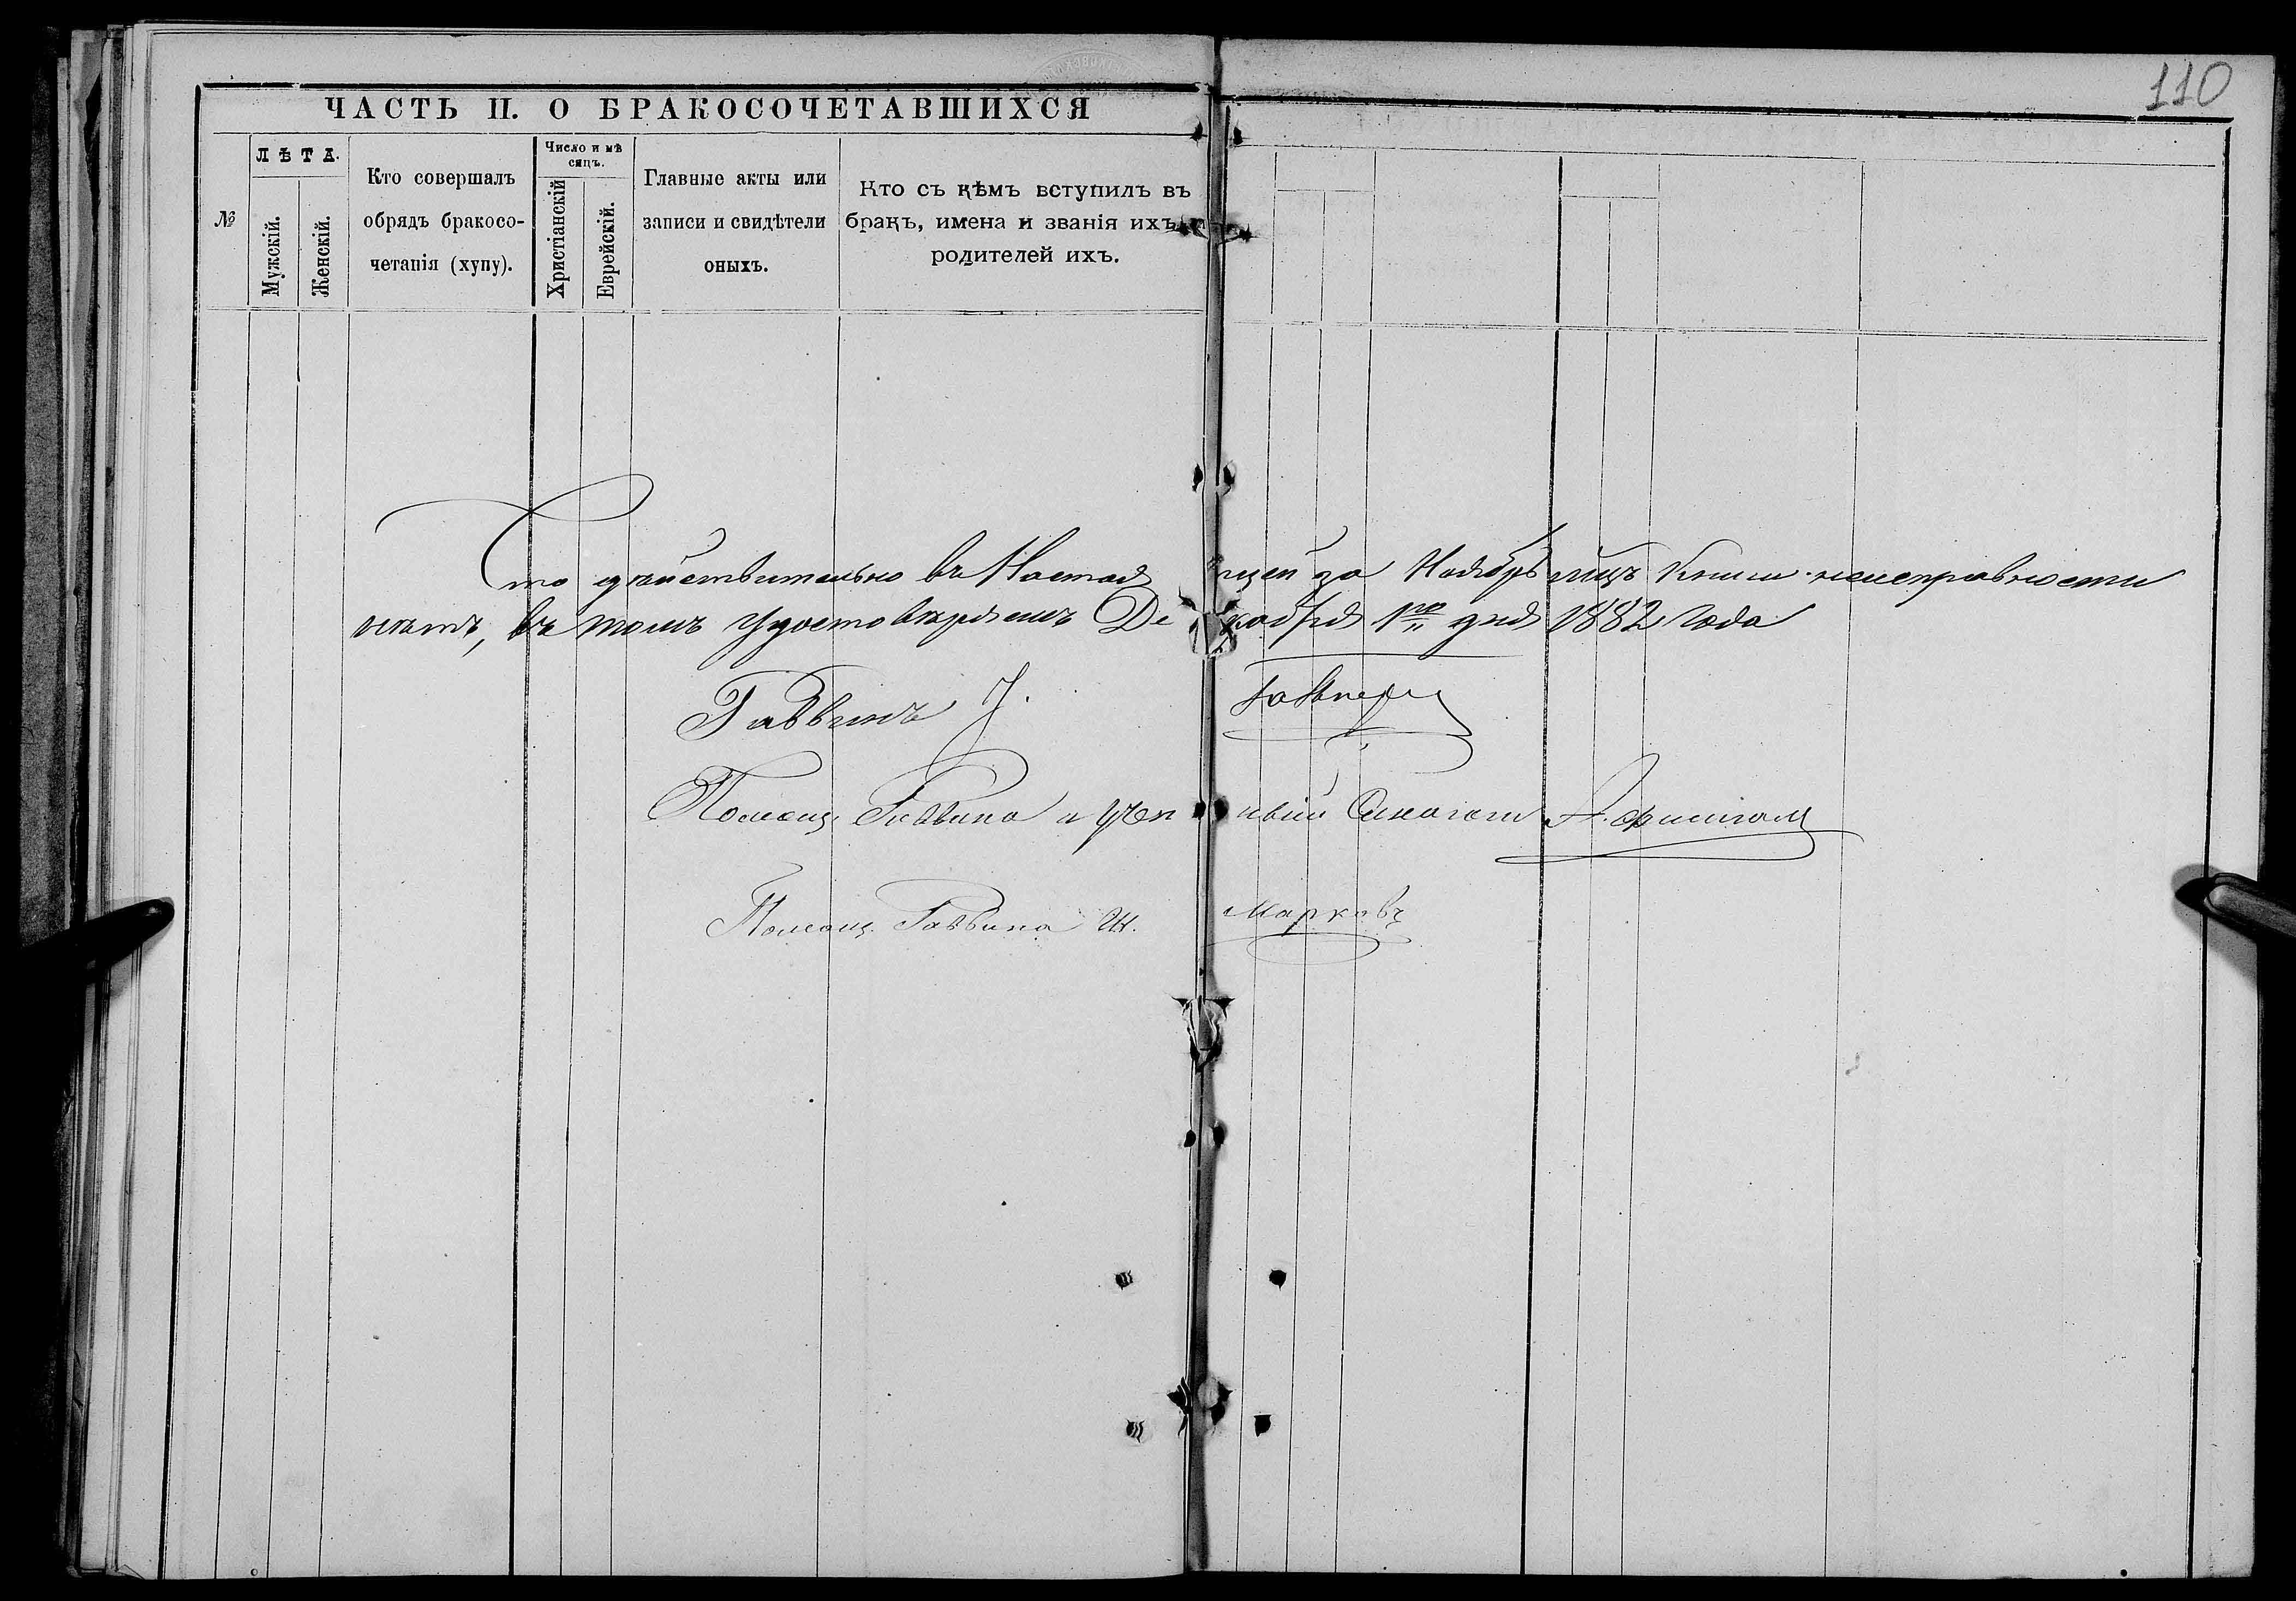 110
ЧАСТЬ II. О БРАКОСОЧЕТАВШИХСЯ
№
ЛѢТА.
Мужскій.
Женскій.
Кто совершалъ
обрядъ бракосо-
четанія (хупу).
Число и мѣ
сяцъ.
Христіанскій
Еврейскій.
Главные акты или
записи и свидѣтели
оныхъ.
Кто съ кѣмъ вступилъ въ
бракъ, имена и званія ихъ и
родителей ихъ.
Что дѣйствительно въ Настоящей за Ноябрь мцъ Книги неисправности
нѣтъ, въ томъ удостовѣряемъ Декабря 1го дня 1882 Года
Раввинъ
Помощ. Раввина и Синагоги
Помощ. Раввина Ш. Марковъ